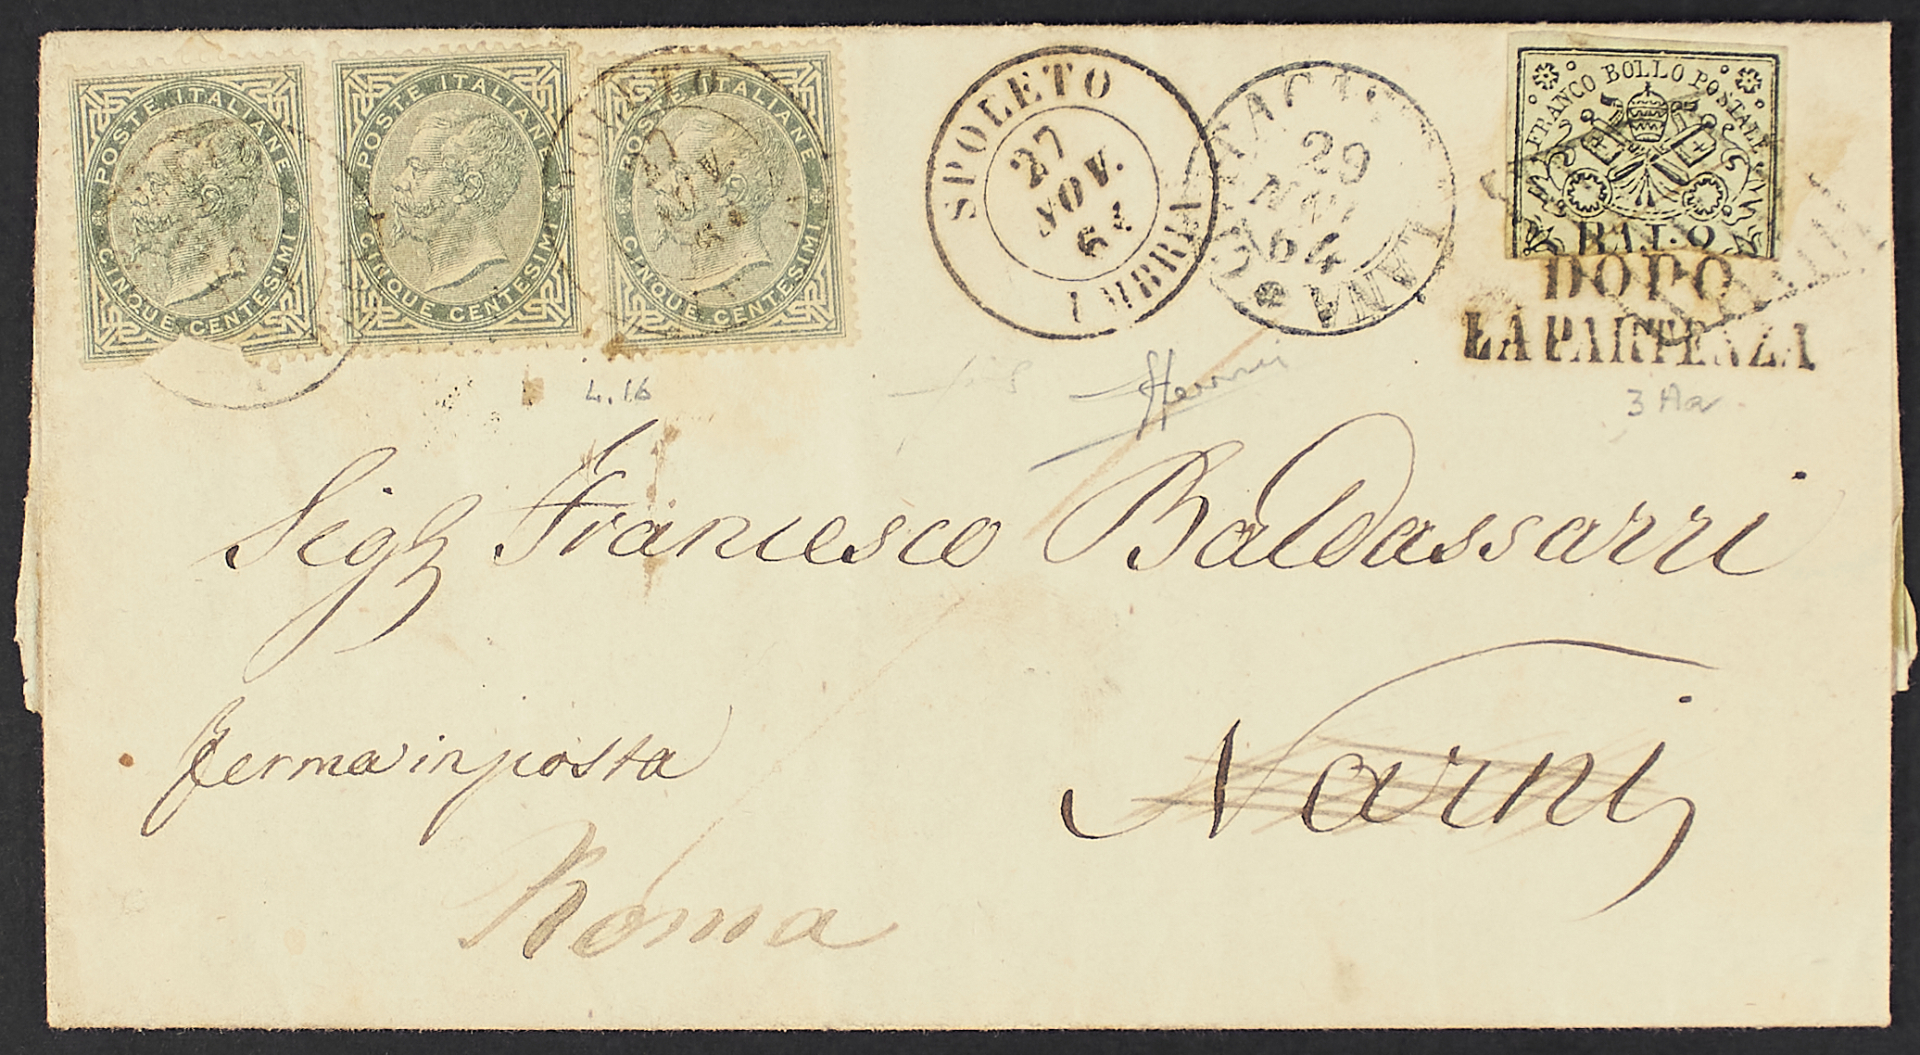 POSTE ITALIANE
CINQUE CENTESIMI
POSTE ITALIANE
CINQUE CENTESIMI
POSTE ITALIANE
CINQUE CENTESIMI
SPOLETO
27
NOV.
64
UMBRIA
29
NOV
64
FRANCO BOLLO POSTALE
BAJ: 2
DOPO
LA PARTENZA
4.16
3 Aa
Sig Francesco Baldassarri
ferma in posta
Narni
Roma